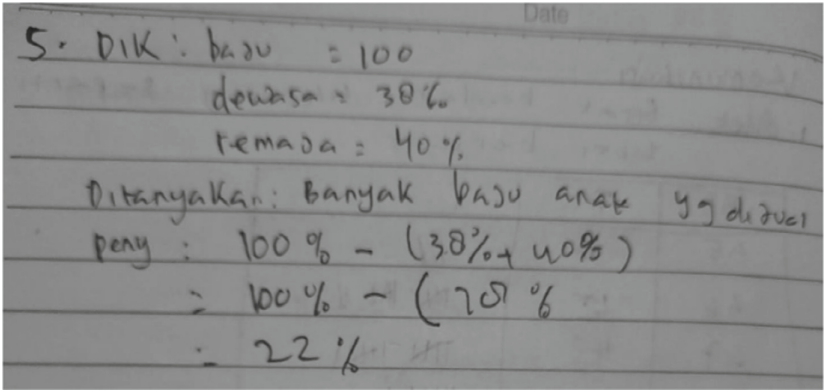 Date
5. DIK : baju = 100
dewasa = 38%
remaja = 40%
Ditanyakan : Banyak baju anak yg dijual
peny : 100% - (38% + 40%)
= 100% - (78%
= 22%